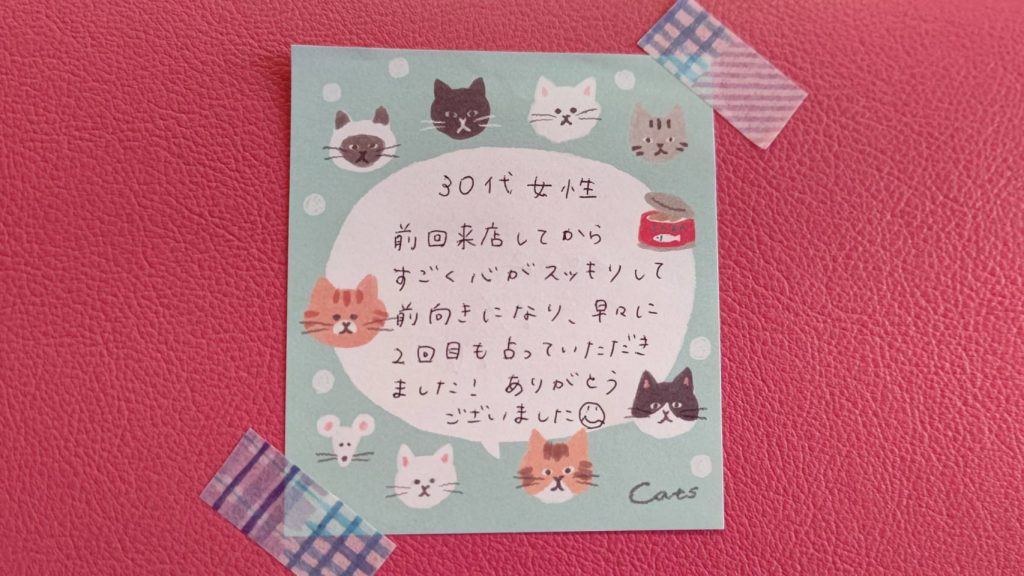 30代女性
前回来店してから
すごく心がスッキリして
前向きになり、早々に
2回目も占っていただき
ました！ ありがとう
ございました
Cats